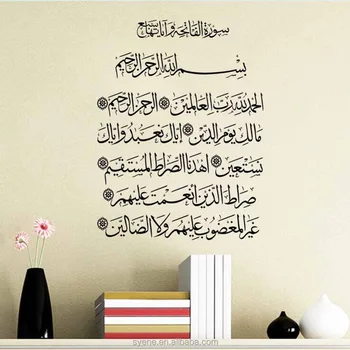 سورة الفاتحة وآياتها سبع
بسم الله الرحمن الرحيم
الحمد لله رب العالمين ۞ الرحمن الرحيم ۞
مالك يوم الدين ۞ إياك نعبد وإياك
نستعين ۞ اهدنا الصراط المستقيم ۞
صراط الذين أنعمت عليهم
غير المغضوب عليهم ولا الضالين ۞
syene.en.alibaba.com